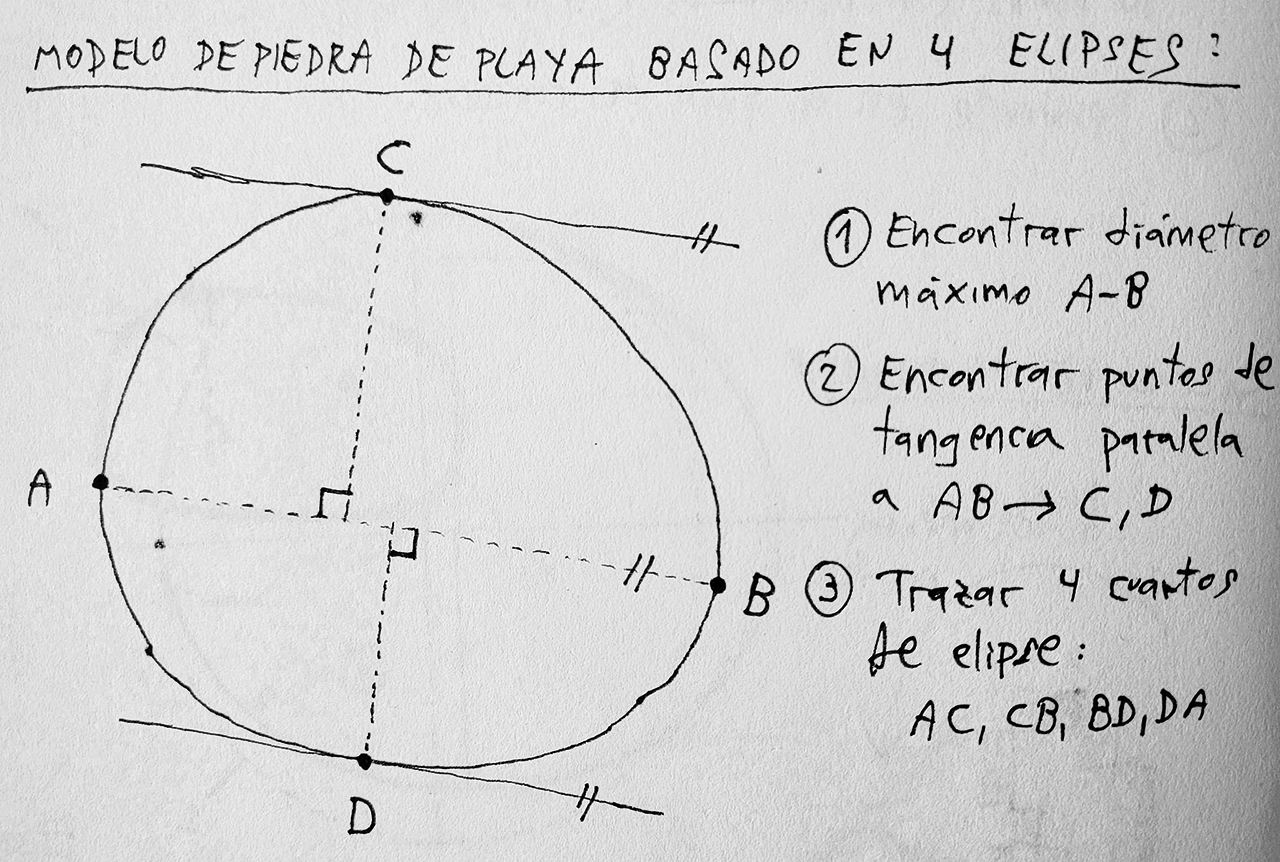 MODELO DE PIEDRA DE PLAYA BASADO EN 4 ELIPSES:
C
① Encontrar diámetro
máximo A-B
② Encontrar puntos de
tangencia paralela
a AB → C, D
A
B
③ Trazar 4 cuartos
de elipse:
AC, CB, BD, DA
D